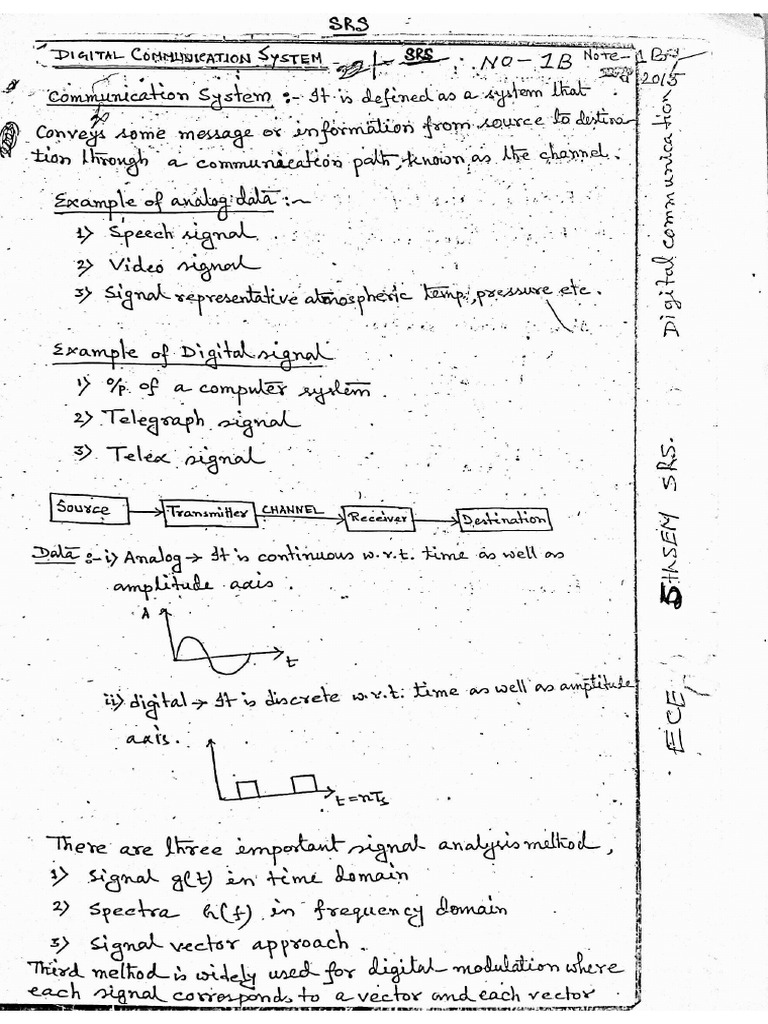 SRS
DIGITAL COMMUNICATION SYSTEM SRS NO-1B Note-1B
2015
Communication System :- It is defined as a system that
Conveys some message or information from source to destina-
tion through a communication path, known as the channel.
Example of analog data :-
1) Speech signal
2) Video signal
3) Signal representative atmospheric temp, pressure etc.
Example of Digital signal
1) o/p of a computer system.
2) Telegraph signal
3) Telex signal
Source Transmitter CHANNEL Receiver Destination
Data :- i) Analog → It is continuous w.r.t. time as well as
amplitude axis.
A
t
ii) digital → It is discrete w.r.t. time as well as amptitude
axis.
t=nTs
There are three important signal analysis method,
1) Signal g(t) in time domain
2) Spectra h(f) in frequency domain
3) Signal vector approach.
Third method is widely used for digital modulation where
each signal corresponds to a vector and each vector
Digital communication
5THSEM SRS.
ECE